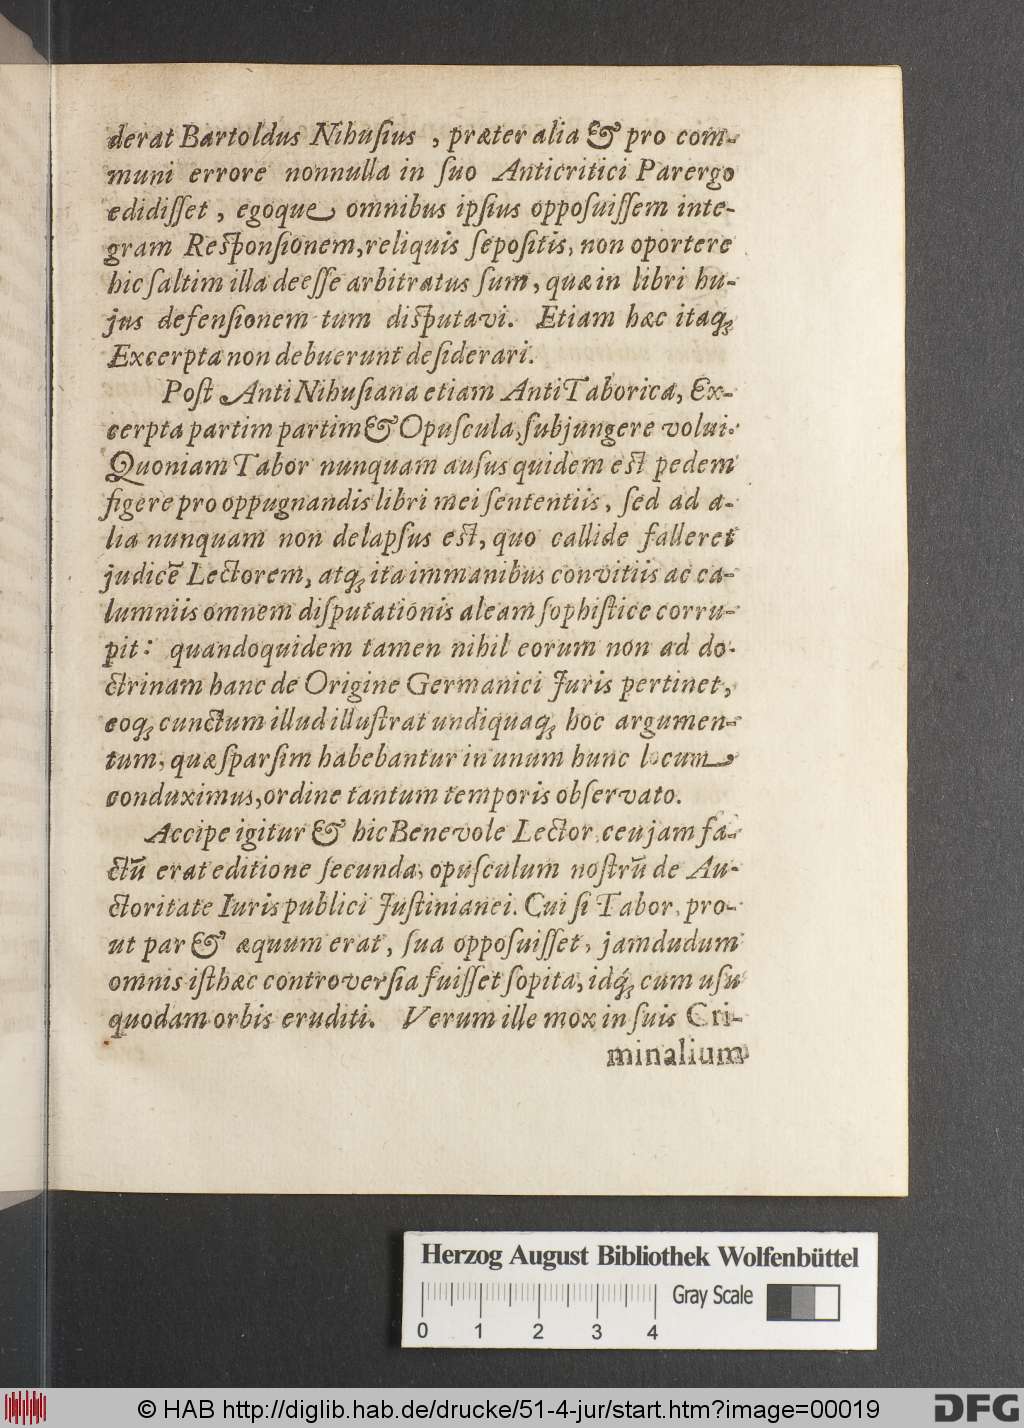 derat Bartoldus Nihuſius, præter alia & pro com-
muni errore nonnulla in ſuo Anticritici Parergo
edidiſſet, egoque omnibus ipſius oppoſuiſſem inte-
gram Reſponſionem, reliquis ſepoſitis, non oportere
hic ſaltim illa deeſſe arbitratus ſum, quæ in libri hu-
jus defenſionem tum diſputavi. Etiam hæc itaq́;
Excerpta non debuerunt deſiderari.
Poſt AntiNihuſiana etiam AntiTaborica, Ex-
cerpta partim partim & Opuſcula, ſubjungere volui.
Quoniam Tabor nunquam auſus quidem eſt pedem
figere pro oppugnandis libri mei ſententiis, ſed ad a-
lia nunquam non delapſus eſt, quo callide falleret
judicē Lectorem, atq; ita immanibus convitiis ac ca-
lumniis omnem diſputationis aleam ſophiſtice corru-
pit: quandoquidem tamen nihil eorum non ad do-
ctrinam hanc de Origine Germanici Juris pertinet,
eoq; cunctum illud illuſtrat undiquaq; hoc argumen-
tum, quæ ſparſim habebantur in unum hunc locum
conduximus, ordine tantum temporis obſervato.
Accipe igitur & hic Benevole Lector, ceu jam fa-
ctū erat editione ſecunda, opuſculum noſtrū de Au-
ctoritate Iuris publici Juſtinianei. Cui ſi Tabor, pro-
ut par & æquum erat, ſua oppoſuiſſet, jamdudum
omnis iſthæc controverſia fuiſſet ſopita, idq́; cum uſu
quodam orbis eruditi. Verum ille mox in ſuis Cri-
minalium
Herzog August Bibliothek Wolfenbüttel
Gray Scale
0 1 2 3 4
© HAB http://diglib.hab.de/drucke/51-4-jur/start.htm?image=00019
DFG